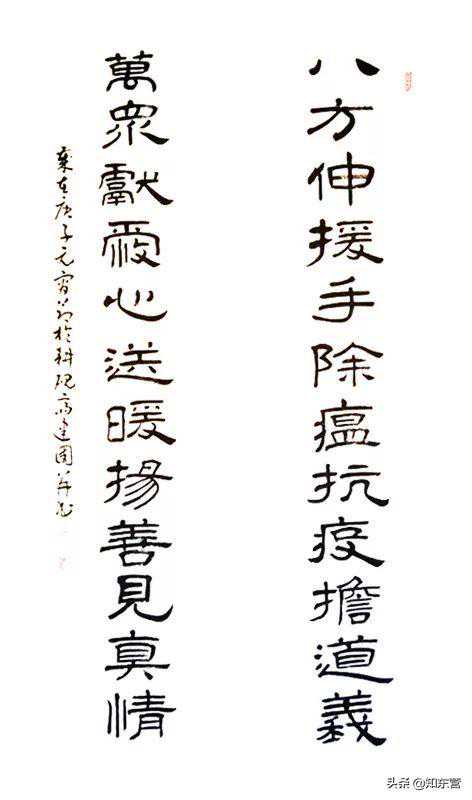 八方伸援手除瘟抗疫擔道義
萬眾獻愛心送暖揚善見真情
庚子元宵節於耕硯高建國并記
头条 @知东营